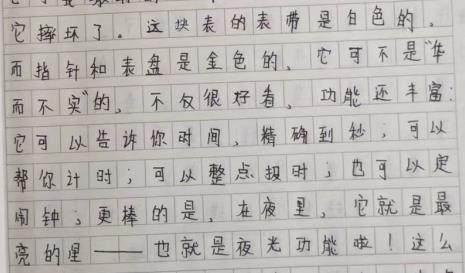 它摔坏了。这块表的表带是白色的，
而指针和表盘是金色的、它可不是“华
而不实”的、不仅很好看，功能还丰富：
它可以告诉你时间，精确到秒；可以
帮你计时；可以整点报时；也可以定
闹钟；更棒的是，在夜里，它就是最
亮的星——也就是夜光功能啦！这么